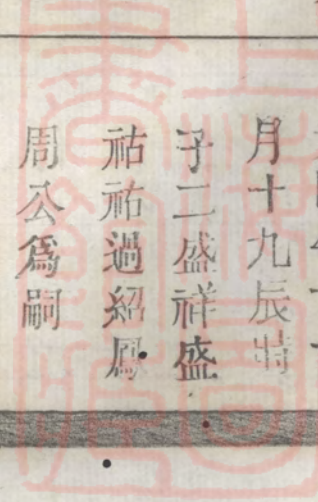 月十九辰時
子二盛祥盛
祜祐過紹鳳
周公爲嗣